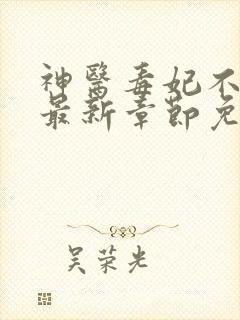 神醫毒妃不
最新章節免
吴荣光